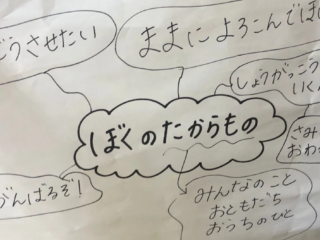 どうさせたい
ままによろこんでほ
しょうがっこう
いくん
ぼくのたからもの
さみ
おわか
がんばるぞ!
みんなのこと
おともだち
おうちのひと